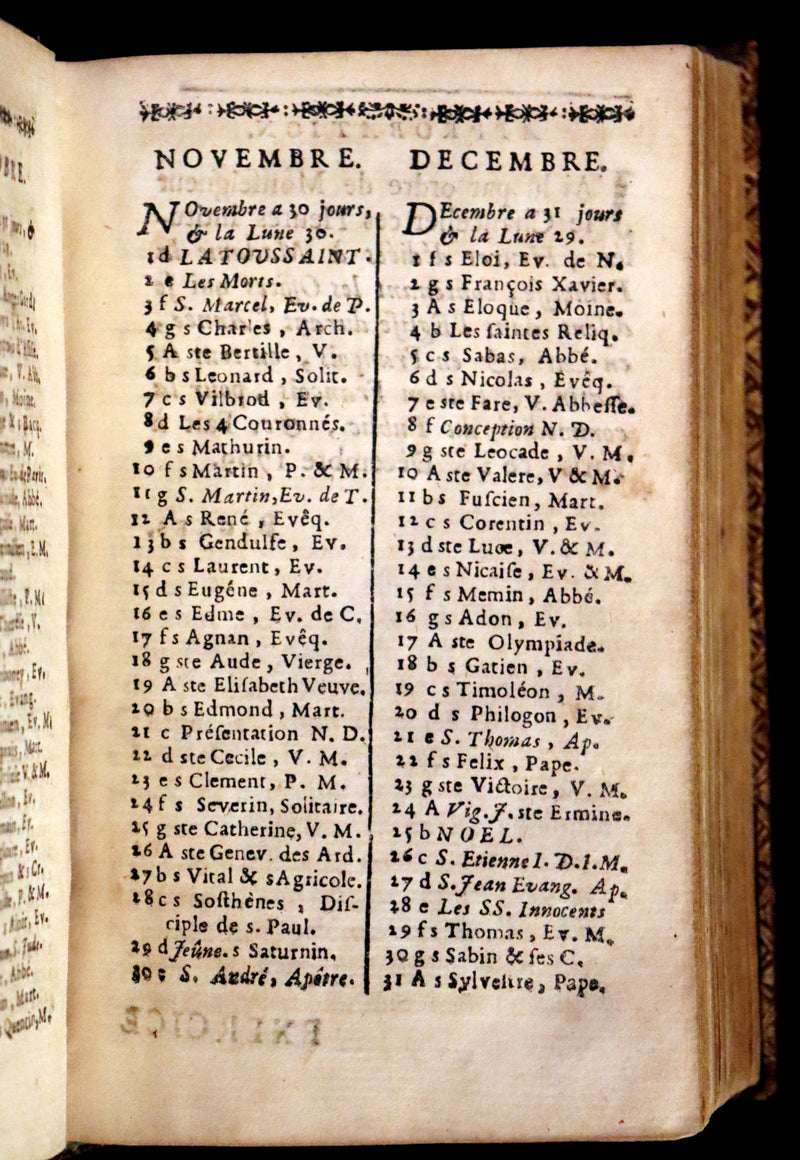 NOVEMBRE.
NOvembre a 30 jours,
& la Lune 30.
1 d LA TOUSSAINT.
2 e Les Morts.
3 f S. Marcel, Ev. de P.
4 g s Charles, Arch.
5 A ste Bertille, V.
6 b s Leonard, Solit.
7 c s Vilbrod, Ev.
8 d Les 4 Couronnés.
9 e s Mathurin.
10 f s Martin, P. & M.
11 g S. Martin, Ev. de T.
12 A s René, Evêq.
13 b s Gendulfe, Ev.
14 c s Laurent, Ev.
15 d s Eugéne, Mart.
16 e s Edme, Ev. de C.
17 f s Agnan, Evêq.
18 g ste Aude, Vierge.
19 A ste Eliſabeth Veuve.
20 b s Edmond, Mart.
21 c Préſentation N. D.
22 d ste Cecile, V. M.
23 e s Clement, P. M.
24 f s Severin, Solitaire.
25 g ste Catherine, V. M.
26 A ste Genev. des Ard.
27 b s Vital & s Agricole.
28 c s Soſthênes, Diſ-
ciple de s. Paul.
29 d Jeûne. s Saturnin.
30 e S. André, Apêtre.
DECEMBRE.
DEcembre a 31 jours
& la Lune 29.
1 f s Eloi, Ev. de N.
2 g s François Xavier.
3 A s Eloque, Moine.
4 b Les ſaintes Reliq.
5 c s Sabas, Abbé.
6 d s Nicolas, Evêq.
7 e ste Fare, V. Abbeſſe.
8 f Conception N. D.
9 g ste Leocade, V. M.
10 A ste Valere, V & M.
11 b s Fuſcien, Mart.
12 c s Corentin, Ev.
13 d ste Luce, V. & M.
14 e s Nicaiſe, Ev. & M.
15 f s Memin, Abbé.
16 g s Adon, Ev.
17 A ste Olympiade.
18 b s Gatien, Ev.
19 c s Timoléon, M.
20 d s Philogon, Ev.
21 e S. Thomas, Ap.
22 f s Felix, Pape.
23 g ste Victoire, V. M.
24 A Vig. J. ste Ermine.
25 b NOEL.
26 c S. Etienne 1. D. 1. M.
27 d S. Jean Evang. Ap.
28 e Les SS. Innocents
29 f s Thomas, Ev. M.
30 g s Sabin & ſes C.
31 A s Sylveſtre, Pape.